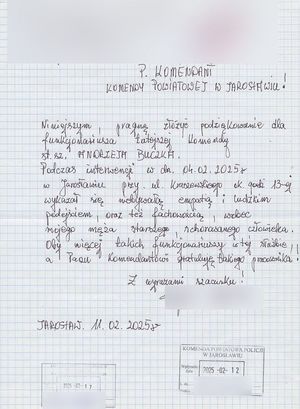 P. KOMENDANT
KOMENDY POWIATOWEJ W JAROSŁAWIU!
Niniejszym, pragnę złożyć podziękowanie dla
funkcjonariusza tutejszej Komendy
st. sz. ANDRZEJA BUCZKA.
Podczas interwencji w dn. 04.02.2025r
w Jarosławiu przy ul. Kraszewskiego ok godz 13-ej
wykazał się niebywałą empatią i ludzkim
podejściem, oraz też fachowością, wobec
mojego męża starszego, schorowanego człowieka.
Oby więcej takich funkcjonariuszy w tej służbie,
a Panu Komendantowi gratuluję takiego pracownika!
Z wyrazami szacunku!
JAROSŁAW. 11.02.2025r
KOMENDA POWIATOWA POLICJI
W JAROSŁAWIU
2025 -02- 12
2025 -02- 12